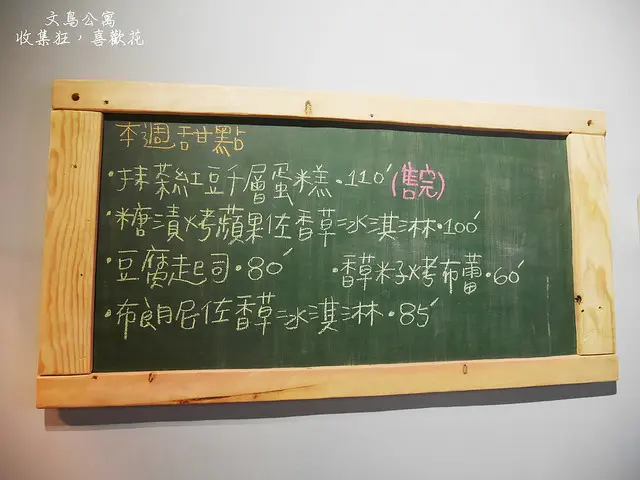 文鳥公寓
收集狂，喜歡花
本週甜點
·抹茶紅豆千層蛋糕·110'(售完)
·糖漬烤蘋果佐香草冰淇淋·100'
·豆腐起司·80' ·香草米子烤布蕾·60'
·布朗尼佐香草冰淇淋·85'